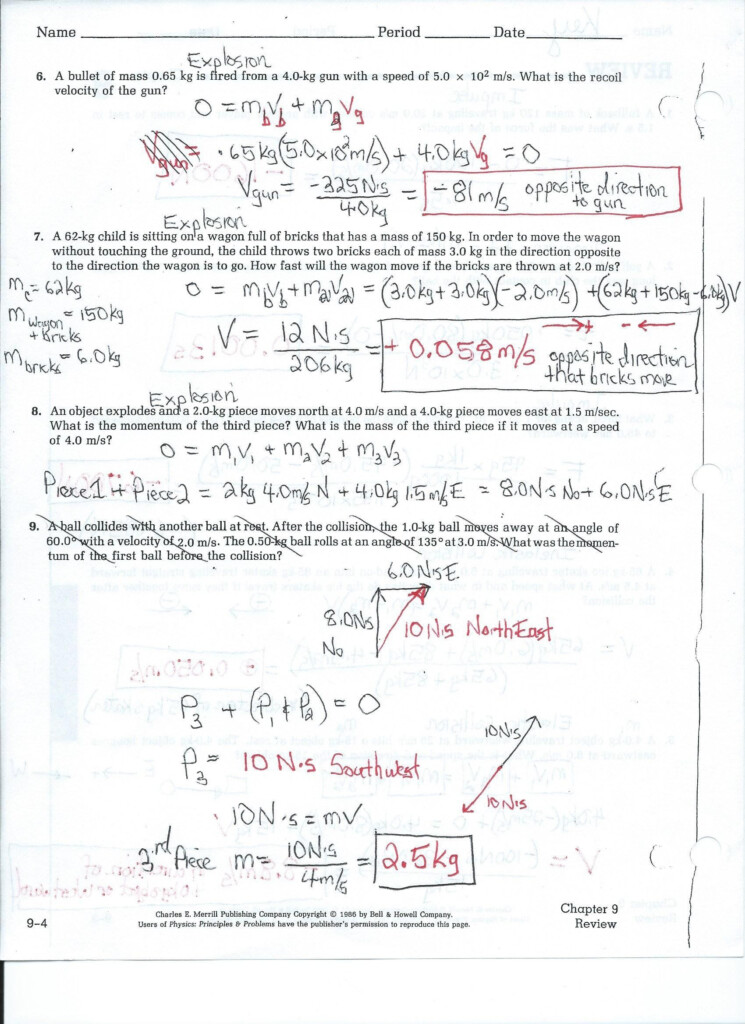 Name Period Date
Explosion
6. A bullet of mass 0.65 kg is fired from a 4.0-kg gun with a speed of 5.0 × 10² m/s. What is the recoil
velocity of the gun?
0 = m_b V_b + m_g V_g
V_gun = .65kg(5.0x10²m/s) + 4.0kg V_g = 0
V_gun = -325 N·s / 4.0kg = -81 m/s opposite direction to gun
Explosion
7. A 62-kg child is sitting on a wagon full of bricks that has a mass of 150 kg. In order to move the wagon
without touching the ground, the child throws two bricks each of mass 3.0 kg in the direction opposite
to the direction the wagon is to go. How fast will the wagon move if the bricks are thrown at 2.0 m/s?
m_c = 62kg
m wagon + bricks = 150kg
m bricks = 6.0kg
0 = m_b V_b + m_2 V_2 = (3.0kg + 3.0kg)(-2.0m/s) + (62kg + 150kg - 6.0kg)V
→ + - ←
V = 12 N·s / 206kg = + 0.058 m/s opposite direction that bricks move
Explosion
8. An object explodes and a 2.0-kg piece moves north at 4.0 m/s and a 4.0-kg piece moves east at 1.5 m/sec.
What is the momentum of the third piece? What is the mass of the third piece if it moves at a speed
of 4.0 m/s?
0 = m₁V₁ + m₂V₂ + m₃V₃
Piece 1 + Piece 2 = 2kg 4.0m/s N + 4.0kg 1.5m/s E = 8.0N·s No + 6.0N·s E
9. A ball collides with another ball at rest. After the collision, the 1.0-kg ball moves away at an angle of
60.0° with a velocity of 2.0 m/s. The 0.50-kg ball rolls at an angle of 135° at 3.0 m/s. What was the momen-
tum of the first ball before the collision?
6.0N·s E
8.0N·s
No
10 N·s NorthEast
P₃ + (P₁ & P₂) = 0
10N·s
P₃ = 10 N·s Southwest
10N·s
10N·s = mV
3rd Piece m = 10N·s / 4m/s = 2.5kg
Charles E. Merrill Publishing Company Copyright © 1986 by Bell & Howell Company.
Users of Physics: Principles & Problems have the publisher's permission to reproduce this page.
9-4
Chapter 9
Review